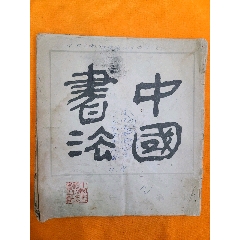 中國
書法